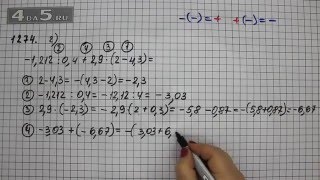 4ДА5.RU
-(-) = +   +(-) = -
1274. г)
② ④ ③ ①
-1,212 : 0,4 + 2,9 · (2 - 4,3) =
① 2 - 4,3 = -(4,3 - 2) = -2,3
② -1,212 : 0,4 = -12,12 : 4 = -3,03
③ 2,9 · (-2,3) = -2,9 · (2 + 0,3) = -5,8 - 0,87 = -(5,8 + 0,87) = -6,67
④ -3,03 + (-6,67) = -(3,03 + 6,